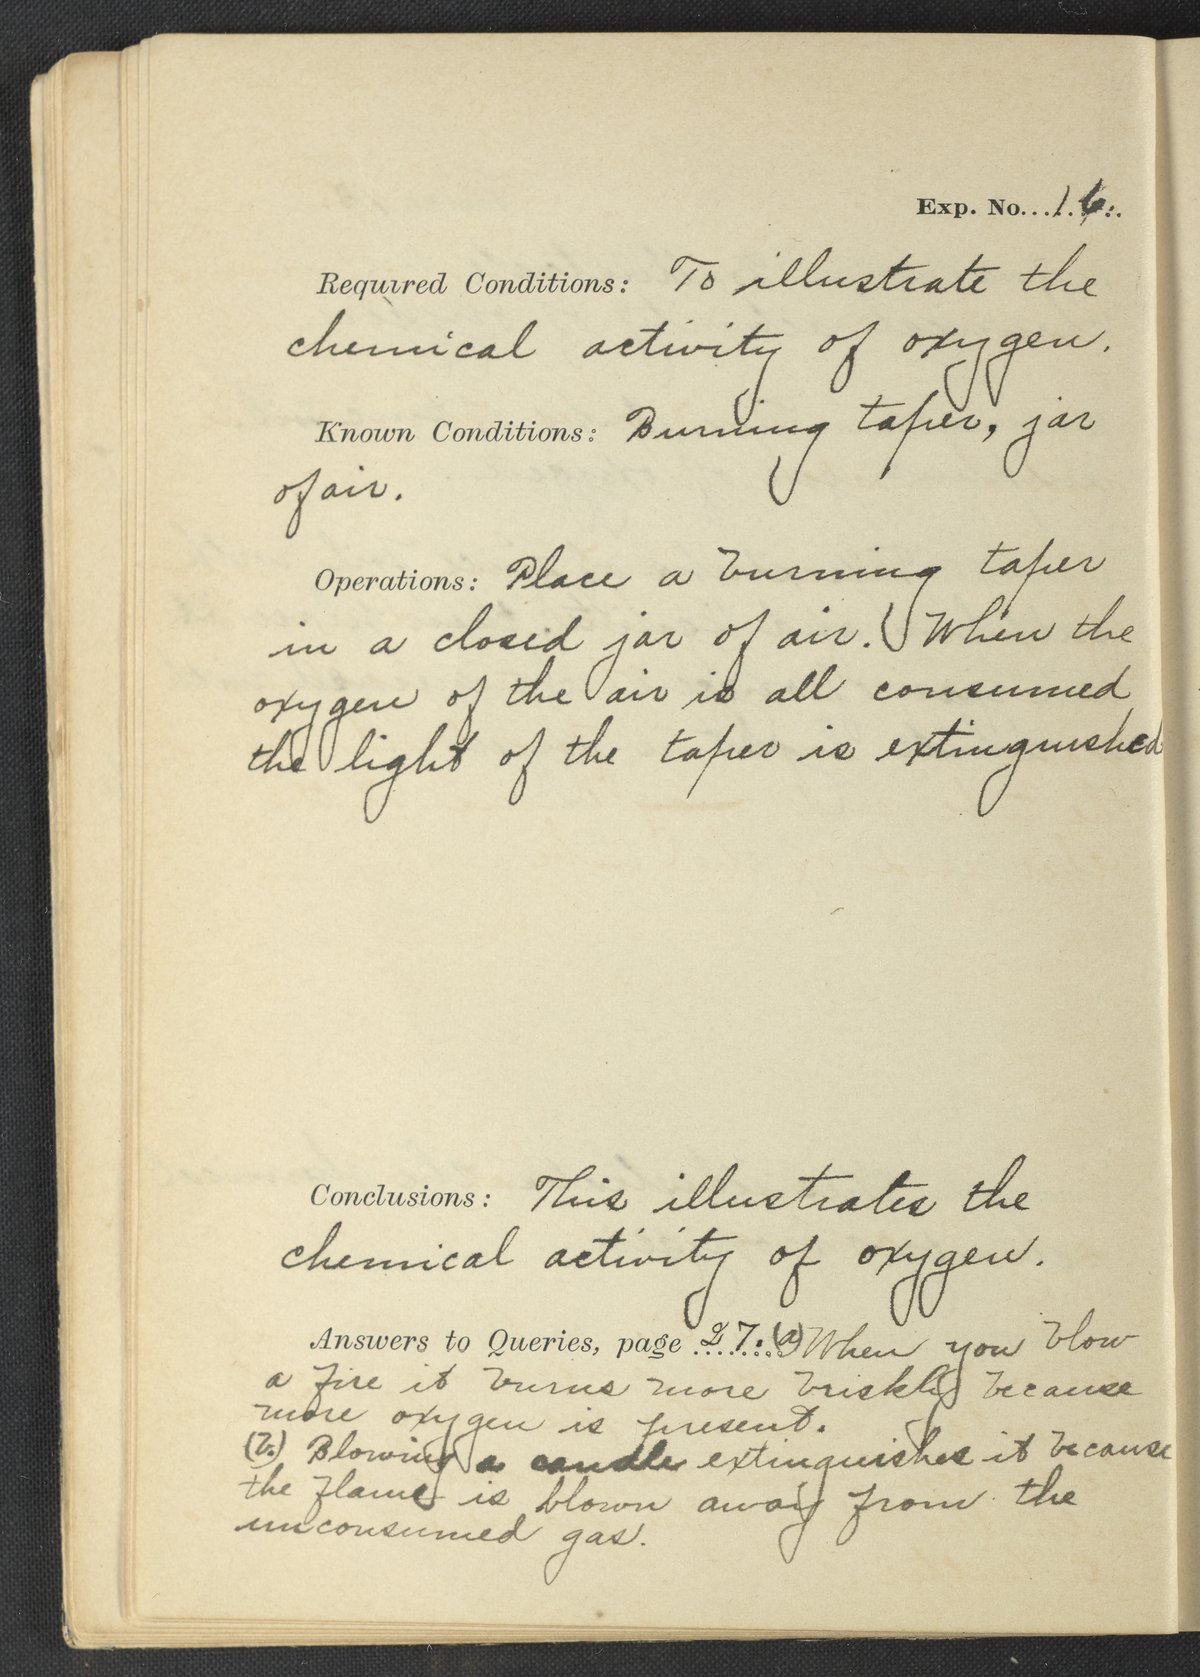 Exp. No. 16.
Required Conditions: To illustrate the
chemical activity of oxygen.
Known Conditions: Burning taper, jar
of air.
Operations: Place a burning taper
in a closed jar of air. When the
oxygen of the air is all consumed
the light of the taper is extinguished
Conclusions: This illustrates the
chemical activity of oxygen.
Answers to Queries, page 27. (a) When you blow
a fire it burns more briskly because
more oxygen is present.
(b.) Blowing a candle extinguishes it because
the flame is blown away from the
unconsumed gas.